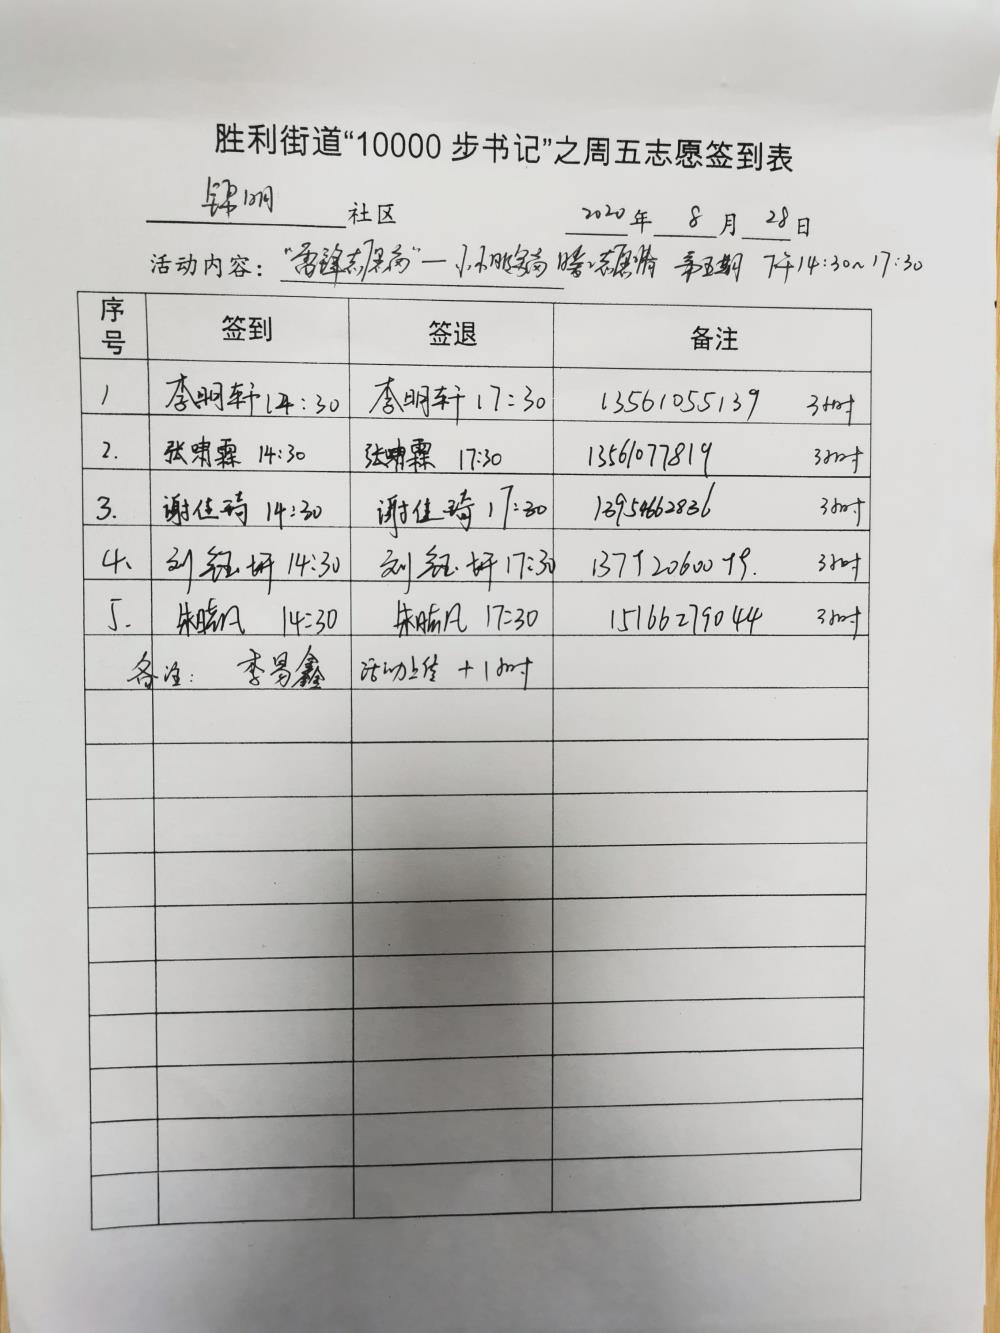 胜利街道“10000 步书记”之周五志愿签到表
锦明 社区 2020 年 8 月 28 日
活动内容： 第五期 下午14:30~17:30
序号 签到 签退 备注
1 李明轩 14:30 李明轩 17:30 13561055139 3小时
2. 张啸霖 14:30 张啸霖 17:30 13561077819 3小时
3. 谢佳琦 14:30 谢佳琦 17:30 13954662836 3小时
4、 刘钰妍 14:30 刘钰妍 17:30 3小时
5. 朱晓凡 14:30 朱晓凡 17:30 15166279044 3小时
备注： 李昜鑫 活动 +1小时